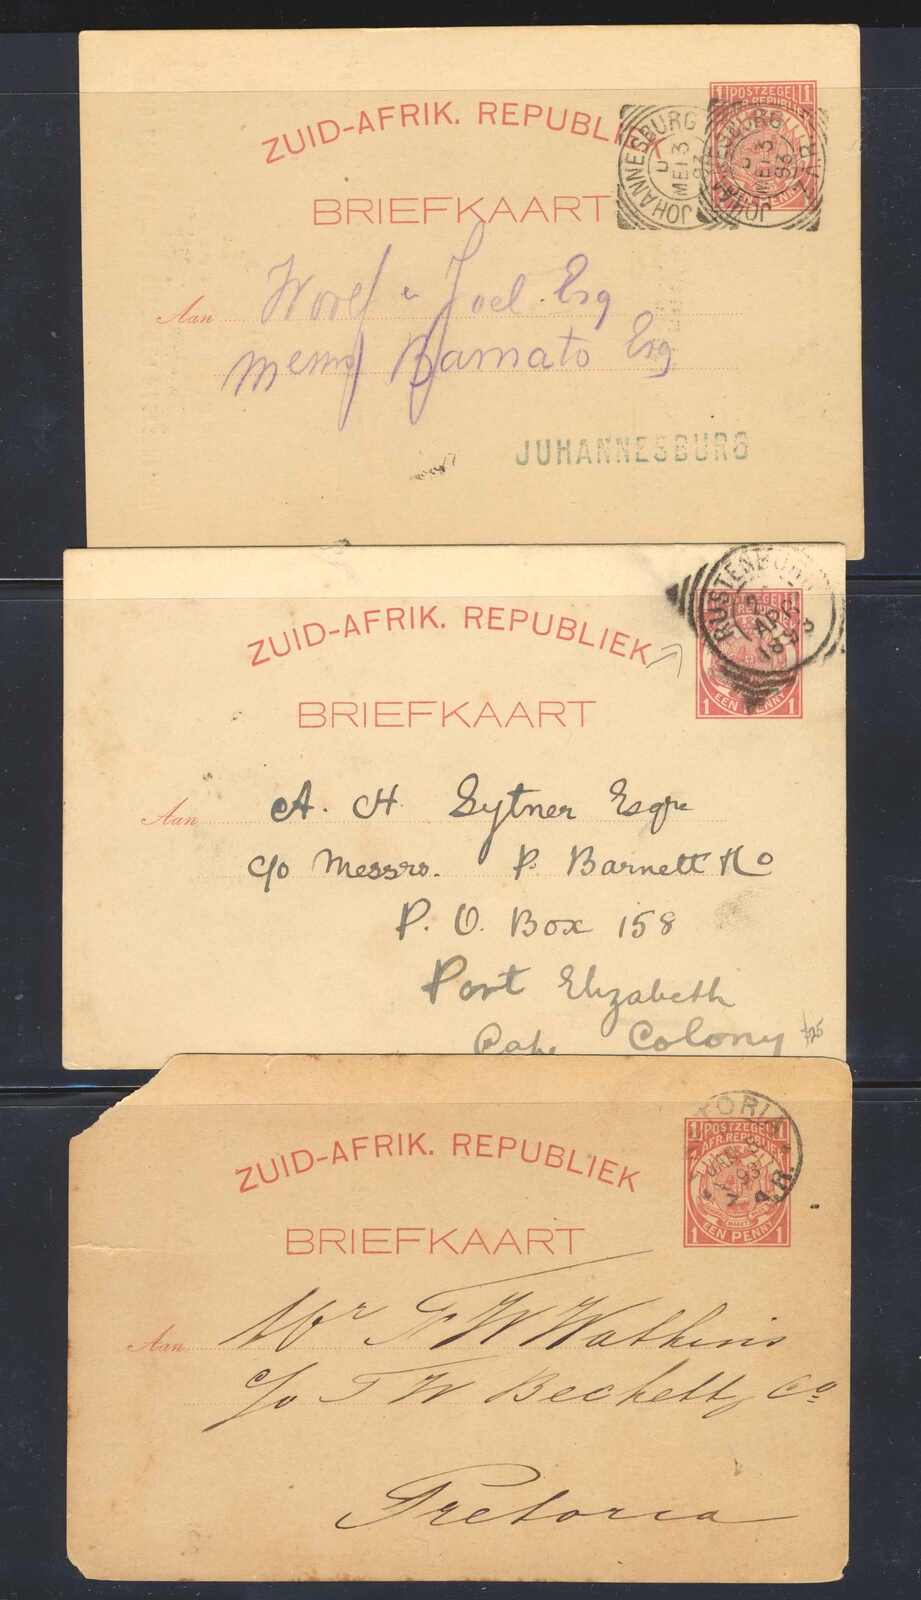 ZUID-AFRIK. REPUBLIEK
1 POSTZEGEL 1
JOHANNESBURG
MEI 3
93
JOHANNESBURG Z.A.R.
MEI 3
93
BRIEFKAART
Aan Woolf Joel. Esq
Barnato Esq
JUHANNESBURG
ZUID-AFRIK. REPUBLIEK
RUSTENBURG
1 EEN PENNY 1
BRIEFKAART
Aan A. H. Sytner Esqre
c/o Messrs. P. Barnett & Co
P. O. Box 158
Port Elizabeth
Cape Colony
ZUID-AFRIK. REPUBLIEK
1 POSTZEGEL 1
AFR. REPUBLIEK
TORIA
JAN
93
Z.A.R.
1 EEN PENNY 1
BRIEFKAART
Aan Mr F W Watkins
c/o T W Beckett & Co
Pretoria